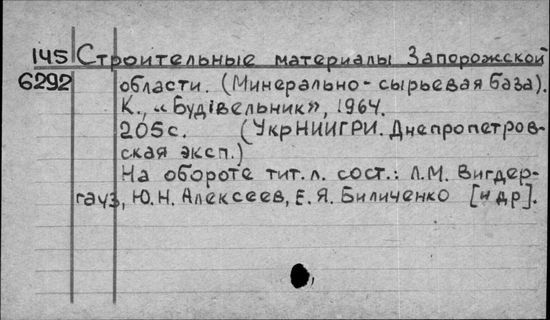 145 Строительные материалы Запорожской
6292 области. (Минерально-сырьевая база).
К., «Будівельник», 1964.
205с. (УкрНИИГРИ. Днепропетров-
ская эксп.)
На обороте тит. л. сост.: Л.М. Вигдер-
гауз, Ю.Н. Алексеев, Е.Я. Биличенко [и др].